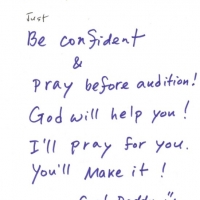 Just
Be confident
&
Pray before audition!
God will help you!
I'll pray for you.
You'll Make it!